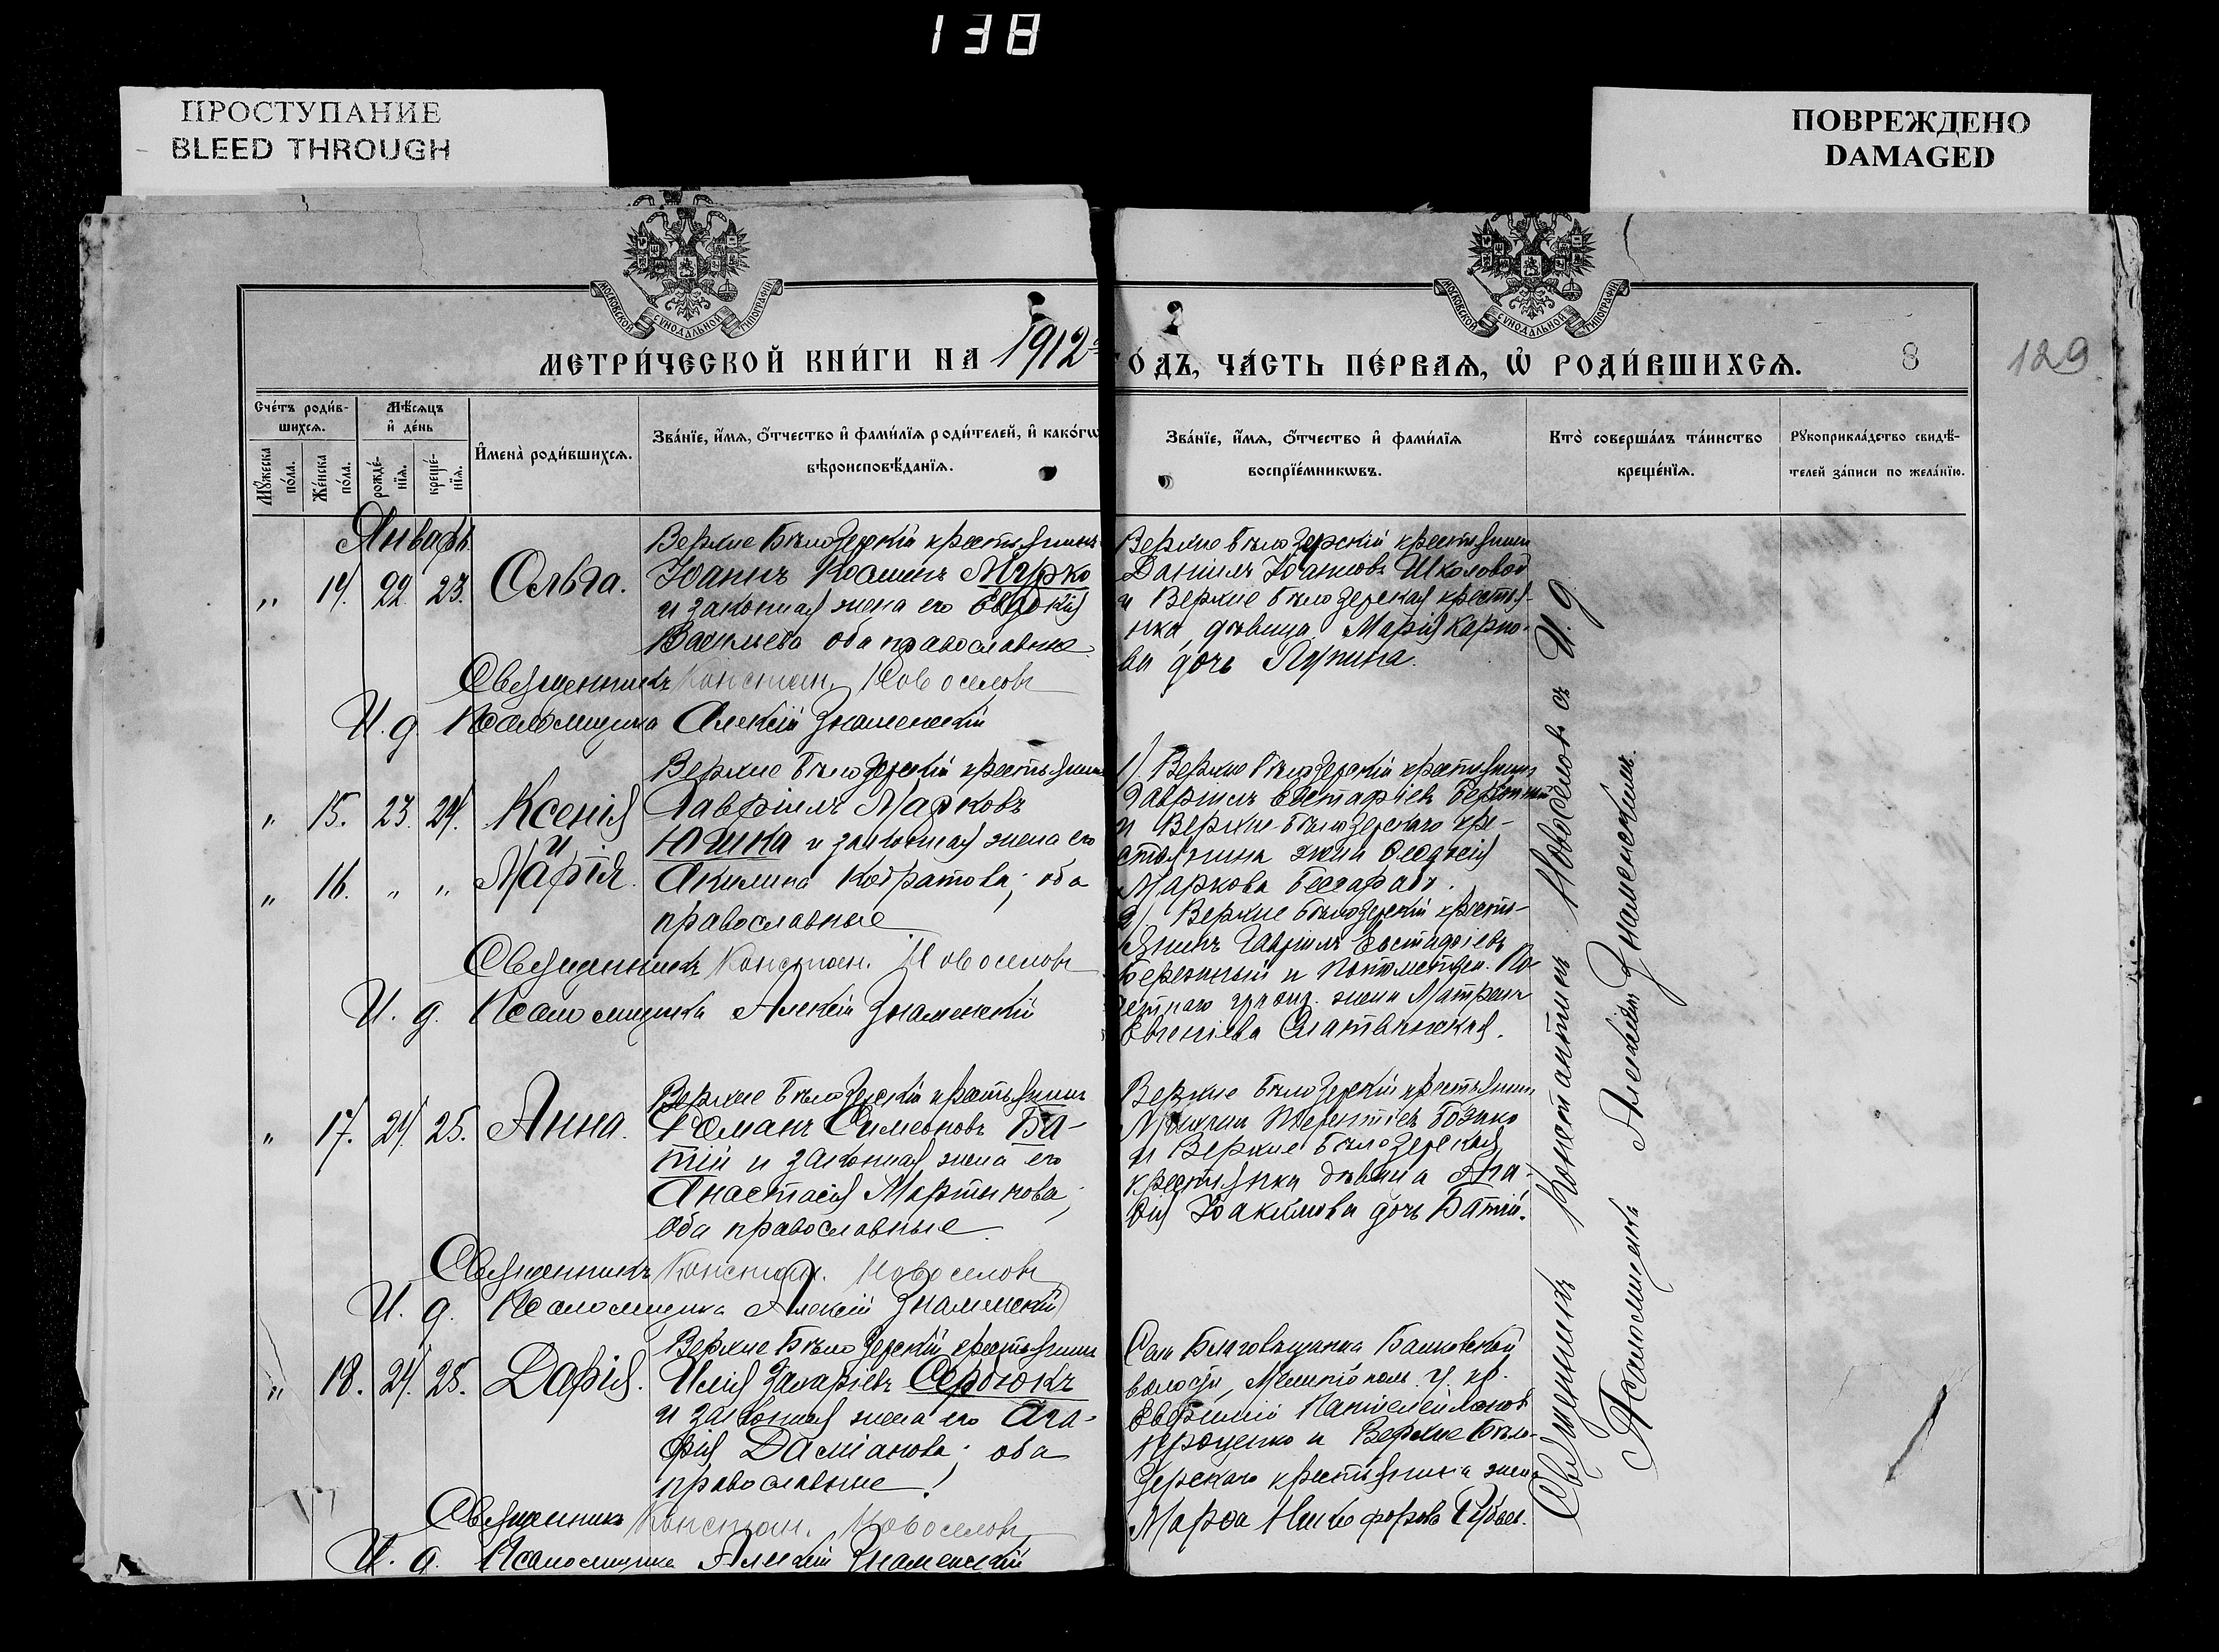 138
ПРОСТУПАНИЕ
BLEED THROUGH
ПОВРЕЖДЕНО
DAMAGED
МОСКОВСКОЙ СѴНОДАЛЬНОЙ ТИПОГРАФІИ
МОСКОВСКОЙ СѴНОДАЛЬНОЙ ТИПОГРАФІИ
МЕТРИ́ЧЕСКОЙ КНИ́ГИ НА 1912
О́ДЪ, ЧА́СТЬ ПЕ́РВАѦ, Ѿ РОДИ́ВШИХСѦ.
8
129
Сче́тъ роди́в-
шихсѧ.
Мѣ́сѧцъ
и҆ де́нь
Мꙋ́жеска по́ла.
Же́нска по́ла.
рожде́-
нїѧ.
креще́-
нїѧ.
И҆мена̀ роди́вшихсѧ.
Зва́нїе, и҆́мѧ, ѻ҆́тчество и҆ фами́лїѧ роди́телей, и҆ како́гѡ
вѣроисповѣ́данїѧ.
Зва́нїе, и҆́мѧ, ѻ҆́тчество и҆ фами́лїѧ
воспрїе́мникѡвъ.
Кто̀ соверша́лъ та́инство
креще́нїѧ.
Рꙋкоприкла́дство свидѣ́-
телей за́писи по жела́нїю.
Январь
" 14. 22. 23. Ольга.
Верхне Бѣлозерскій крестьянинъ
Іоаннъ Косминъ Мурко
и законная жена его Евдокія
Васильева оба православные.
Верхне бѣлозерскій крестьянин
Даніилъ Іоанновъ Школовой
и Верхне бѣлозерская крестья-
нка дѣвица Марія Карпо-
ва дочь Пупина.
Священникъ Констан. Новоселовъ
И. д. Псаломщика Алексій Знаменскій
" 15. 23. 24. Ксенія
и
" 16. " " Марія.
Верхне бѣлозерскій крестьянинъ
Гавріилъ Марковъ
Юшка и законная жена его
Акилина Кодратова; оба
православные
1). Верхне бѣлозерскій крестьянин
Гавріилъ Евстафіевъ Бережный
и Верхне-бѣлозерскаго кре-
стьянина жена Феодосія
Маркова
2). Верхне бѣлозерскій кресть-
янинъ Гавріилъ Евстафіевъ
Бережный и Потомствен. По-
четнаго гражд. жена Матрена
Евгеніева
Священникъ Констан. Новоселовъ
И. д. Псаломщика Алексій Знаменскій
" 17. 24. 25. Анна.
Верхне бѣлозерскій крестьянин
Романъ Симеоновъ Ба-
тій и законная жена его
Анастасія Мартинова;
оба православные.
Верхне бѣлозерскій крестьянин
Михаилъ Терентіевъ Бозико
и Верхне бѣлозерская
крестьянка дѣвица Ага-
фія Іоакимова дочь Батій.
Священникъ Констан. Новоселовъ
И. д. Псаломщика Алексій Знаменскій
" 18. 24. 25. Дарія.
Верхне Бѣлозерскій крестьянин
Илія Захаріевъ Сердюкъ
и законная жена его Ага-
фія Даміанова; оба
православные.
Села Благовѣщенка Балковской
волости, Мелитопол. у. кр.
Евфимій Пантелеймонов
Проценко и Верхне Бѣло-
зерскаго крестьянина жена
Марфа Никифорова
Священникъ Констан. Новоселовъ
И. д. Псаломщика Алексій Знаменскій
Священникъ Константинъ Новоселовъ съ И. д
Псаломщика Алексіем Знаменскимъ.